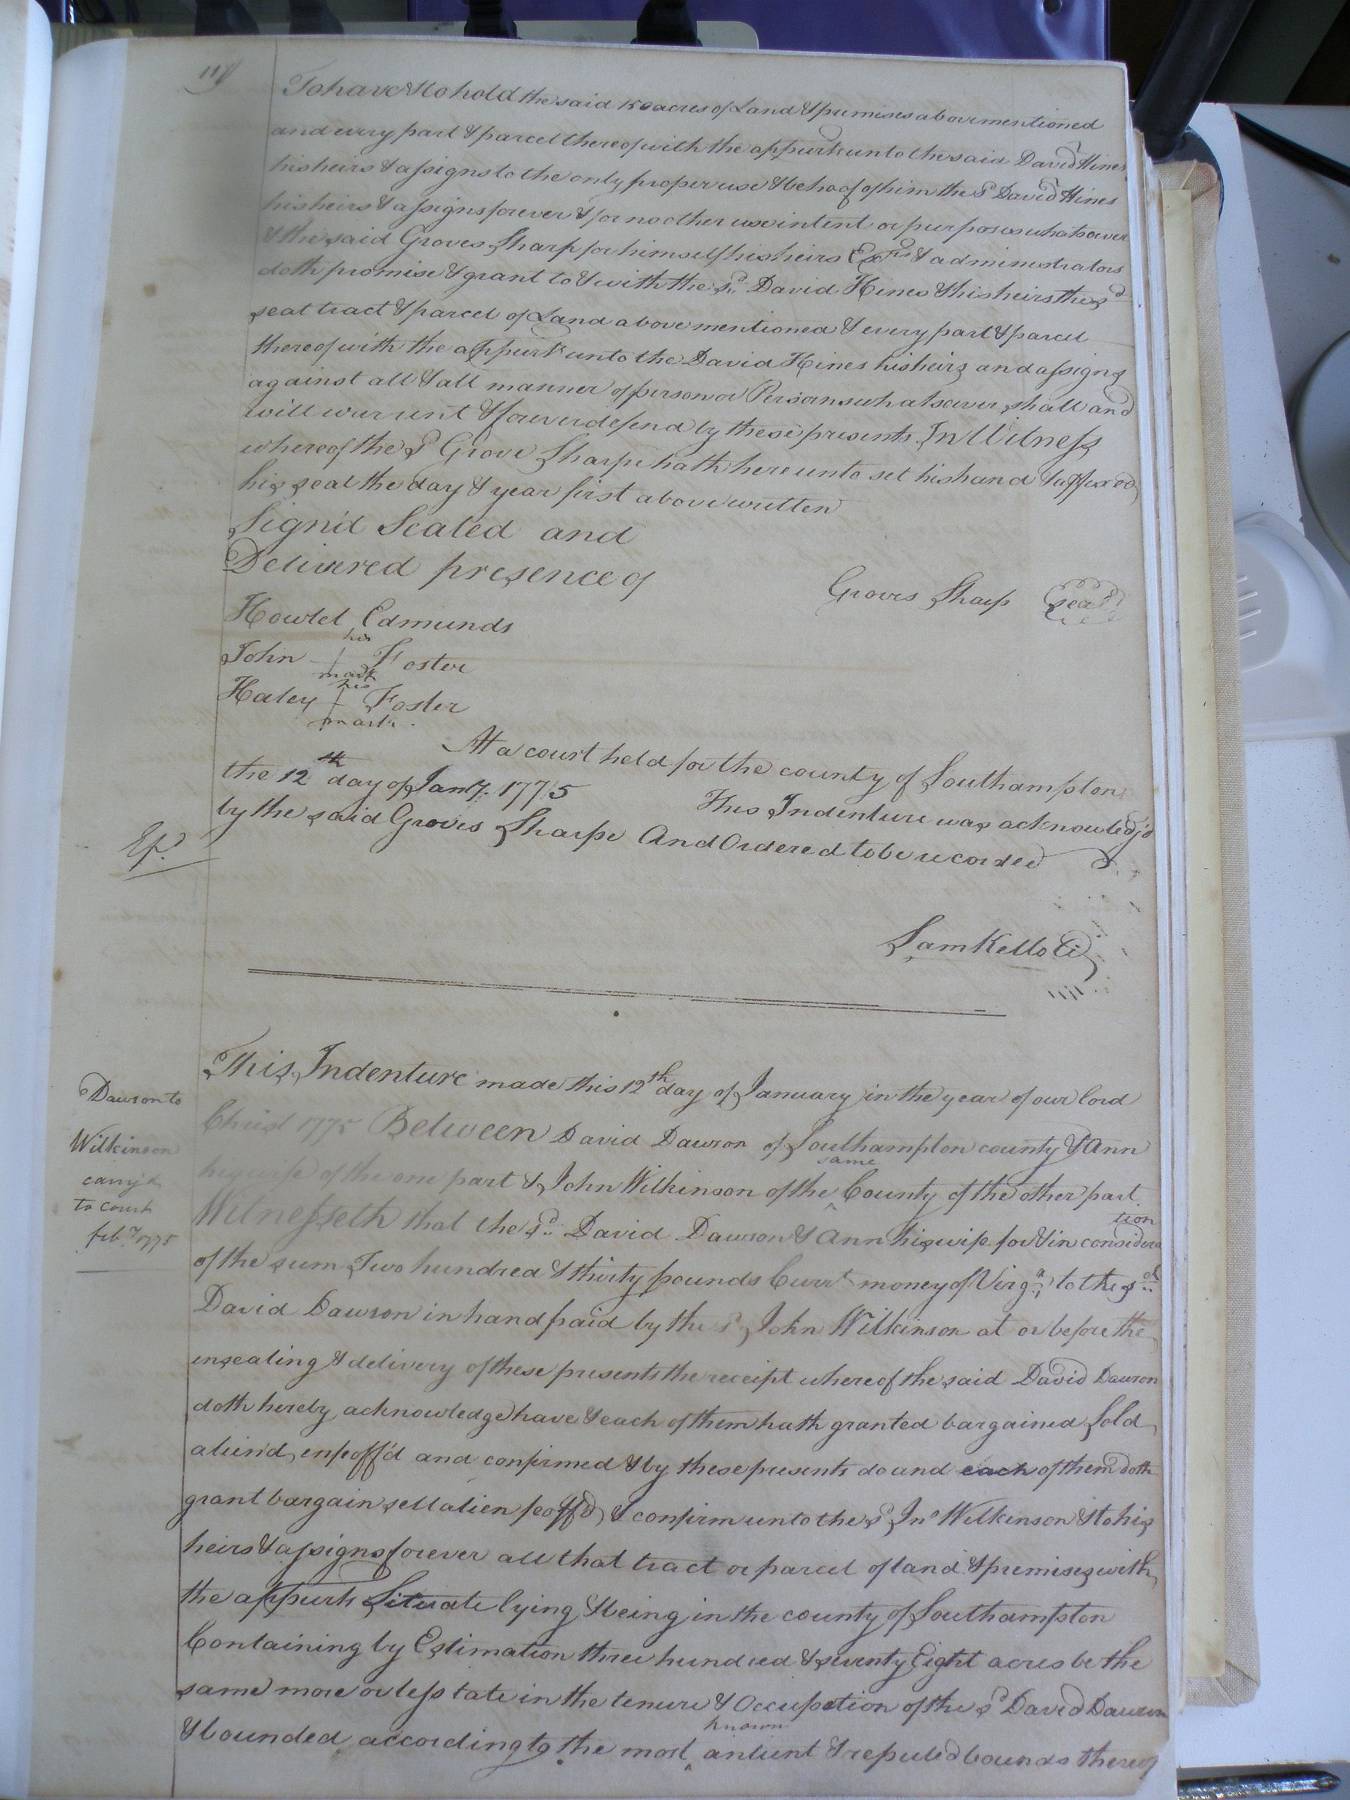 To have & to hold the said 150 acres of Land & premises above mentioned
and every part & parcel thereof with the appurts unto the said David Hines
his heirs & assigns to the only proper use & behoof of him the sd David Hines
his heirs & assigns forever & for no other use intent or purposes whatsoever
& the said Groves Sharp for himself his heirs Exrs & administrators
doth promise & grant to & with the sd David Hines & his heirs the sd
seat tract & parcel of Land above mentioned & every part & parcel
thereof with the appurts unto the David Hines his heirs and assigns
against all & all manner of person or Persons whatsoever shall and
will warrent & forever defend by these presents In Witness
whereof the sd Grove Sharpe hath here unto set his hand & affixed
his seal the day & year first above written
Sign'd Sealed and
Delivered presence of
Groves Sharp seal
Howlet Edmunds
his
John Foster
mark
his
Haley Foster
mark
At a court held for the county of Southampton
the 12th day of Jany. 1775
This Indenture was acknowledg'd
by the said Groves Sharpe And Ordered to be recorded
Sam Kello
This Indenture made this 12th day of January in the year of our lord
Dawson to
Christ 1775 Between David Dawson of Southampton county & Ann
Wilkinson
same
his wife of the one part & John Wilkinson of the County of the other part
carry'd
to court
Witnesseth that the sd. David Dawson & Ann his wife for & in consideration
feby 1775
of the sum Two hundred & thirty pounds Currt money of Virga. to the sd.
David Dawson in hand paid by the sd John Wilkinson at or before the
ensealing & delivery of these presents the receipt whereof the said David Dawson
doth hereby acknowledge have & each of them hath granted bargained sold
alien'd, enfeoff'd and confirmed & by these presents do and each of them doth
grant bargain sell alien feoff'd & confirm unto the sd Jno Wilkinson & to his
heirs & assigns forever all that tract or parcel of land & premises with
the appurts Situate lying & being in the county of Southampton
Containing by Estimation three hundred & seventy Eight acres be the
same more or less late in the tenure & Occupation of the sd David Dawson
known
& bounded according to the most antient & reputed bounds thereof